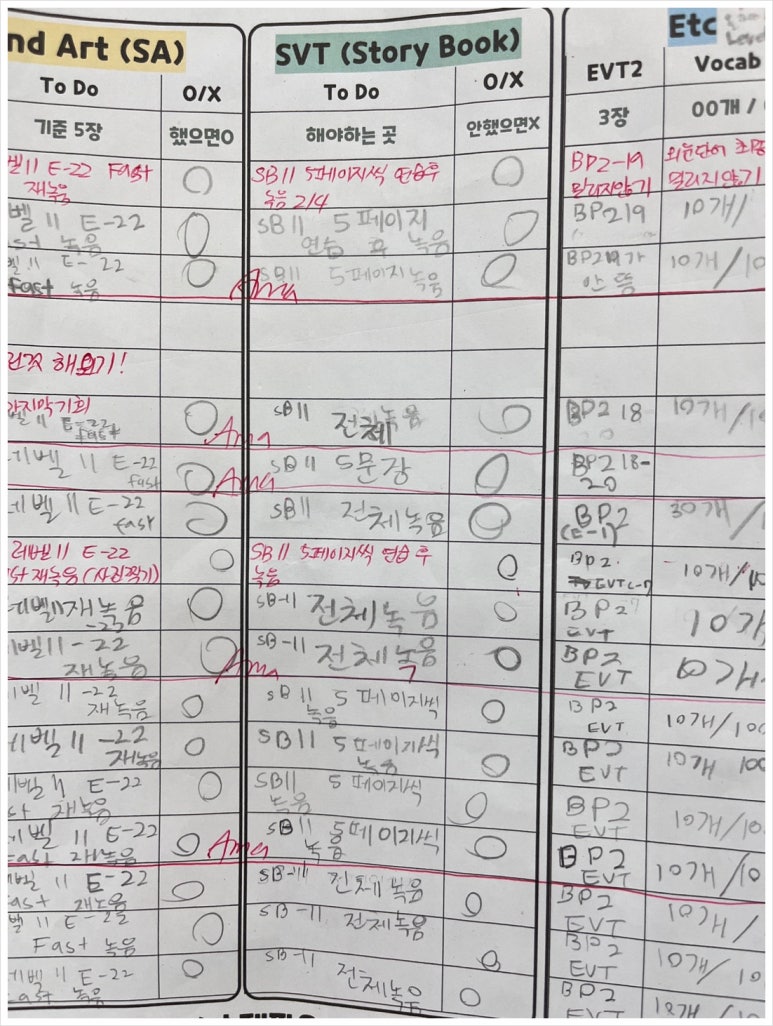 nd Art (SA)
SVT (Story Book)
Etc
To Do
O/X
To Do
O/X
EVT2
Vocab
기준 5장
했으면O
해야하는 곳
안했으면X
3장
00개 /
벨11 E-22 Fast
재녹음
SB11 5페이지씩 연습후
녹음 2/4
BP2-19
밀리지않기
외운단어
밀리지않기
벨 11 E-22
녹음
SB11 5페이지
연습 후 녹음
BP219
10개/
벨11 E-22
Fast 녹음
SB11 5페이지 녹음
BP219가
안 뜸
10개/10
Ama
해오기!
마지막기회
벨 11 E-22
fast
SB11 전체녹음
BP2 18
10개/10
Ama
레벨 11 E-22
fast
SB11 5문장
BP218-
20
Ama
레벨 11 E-22
fast
SB11 전체녹음
BP2
(E-1)
30개/
레벨11 E-22
재녹음 (사진찍기)
SB11 5페이지씩 연습 후
녹음
BP2
10개/
레벨11재녹음
SB-11 전체녹음
BP2
EVT
10개
벨11-22
재녹음
SB-11 전체녹음
BP2
EVT
10개
Ama
벨 11-22
재녹음
SB11 5페이지씩
녹음
BP2
EVT
10개/100
레벨11-22
재녹음
SB11 5페이지씩
녹음
BP2
EVT
10개 100
벨11 E-22
재녹음
SB11 5페이지씩
녹음
BP2
EVT
10개/10
레벨 11 E-22
Fast 재녹음
SB11 5페이지씩
녹음
BP2
EVT
10개/10
Ama
벨 11 E-22
Fast 재녹음
SB-11 전체녹음
BP2
EVT
10개/
벨 11 E-22
Fast 녹음
SB-11 전체녹음
BP2
EVT
10개/10
레벨11 E-22
Fast 녹음
SB-11
전체녹음
BP2
EVT